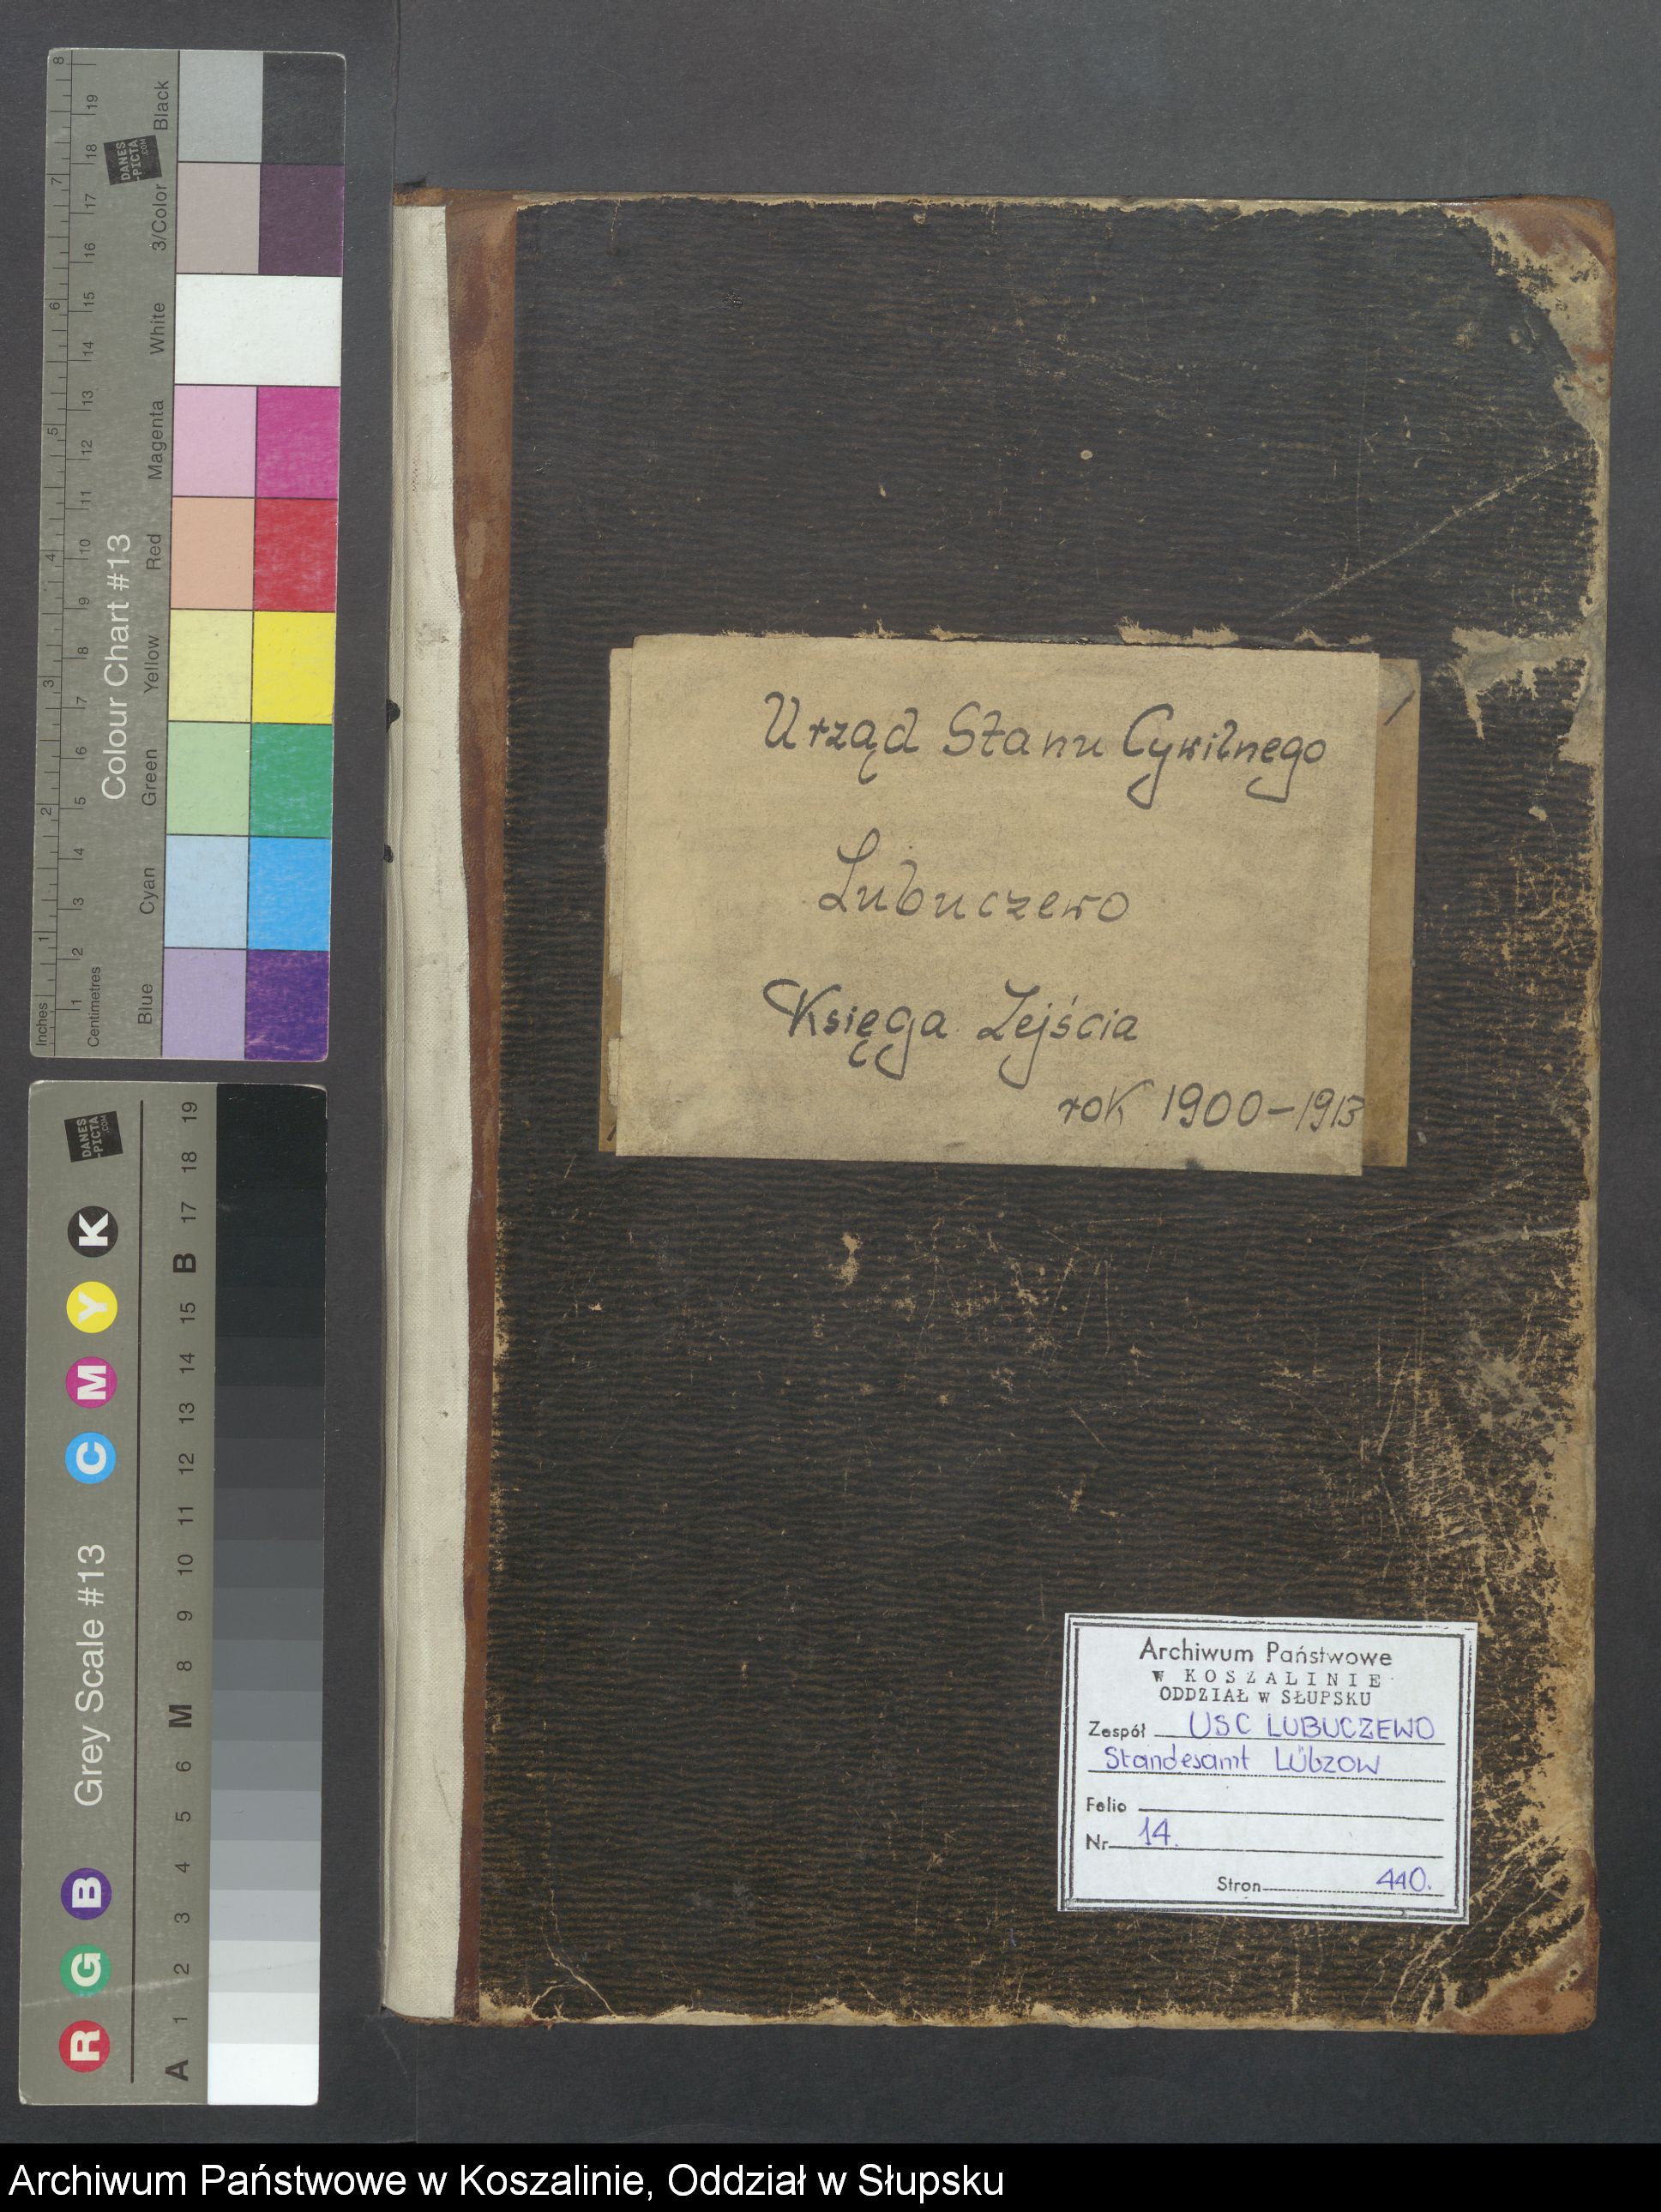 Urząd Stanu Cywilnego
Lubuczewo
Księga Zejścia
rok 1900-1913
Archiwum Państwowe
W KOSZALINIE
ODDZIAŁ W SŁUPSKU
Zespół USC LUBUCZEWO
Standesamt Lübzow
Folio
Nr 14.
Stron 440.
Inches
Centimetres
8 7 6 5 4 3 2 1
19 18 17 16 15 14 13 12 11 10 9 8 7 6 5 4 3 2 1
Colour Chart #13
DANES
-PICTA
.COM
Blue Cyan Green Yellow Red Magenta White 3/Color Black
R G B Grey Scale #13 C M Y K
DANES
-PICTA
.COM
A 1 2 3 4 5 6 M 8 9 10 11 12 13 14 15 B 17 18 19
Archiwum Państwowe w Koszalinie, Oddział w Słupsku